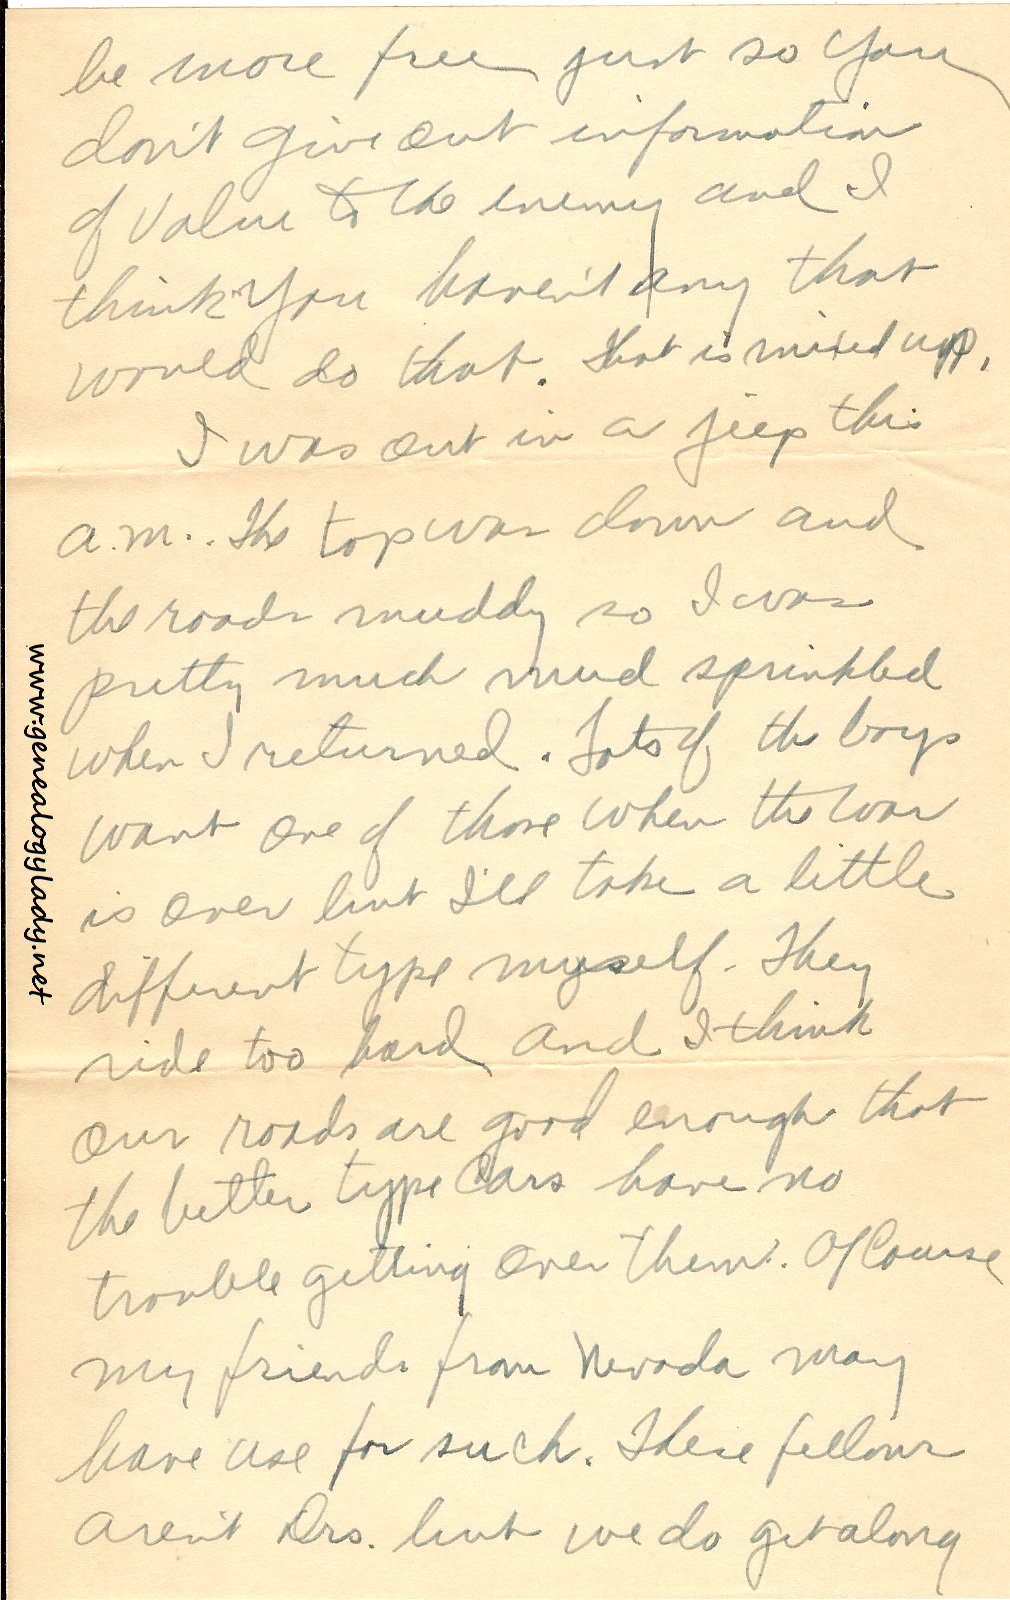 be more free just so you
don't give out information
of value to the enemy and I
think you haven't any that
would do that. That is mixed upp.
I was out in a jeep this
a.m.. The top was down and
the roads muddy so I was
pretty much mud sprinkled
when I returned. Lots of the boys
want one of those when the war
is over but I'll take a little
different type myself. They
ride too hard and I think
our roads are good enough that
the better type cars have no
trouble getting over them. Of Course
my friends from Nevada may
have use for such. These fellows
aren't Drs. but we do get along
www.genealogylady.net